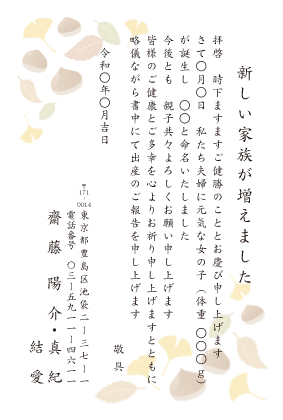 新しい家族が増えました
拝啓　時下ますますご健勝のこととお慶び申し上げます
さて〇月〇日　私たち夫婦に元気な女の子（体重　〇〇〇ｇ）
が誕生し　〇〇と命名いたしました
今後とも　親子共々よろしくお願い申し上げます
皆様のご健康とご多幸を心よりお祈り申し上げますとともに
略儀ながら書中にて出産のご報告を申し上げます
敬具
令和〇年〇月吉日
〒171-0014
東京都豊島区池袋二ー三七ー一
電話番号　〇三ー五九一一ー四六一一
齋藤　陽介・真紀
結愛